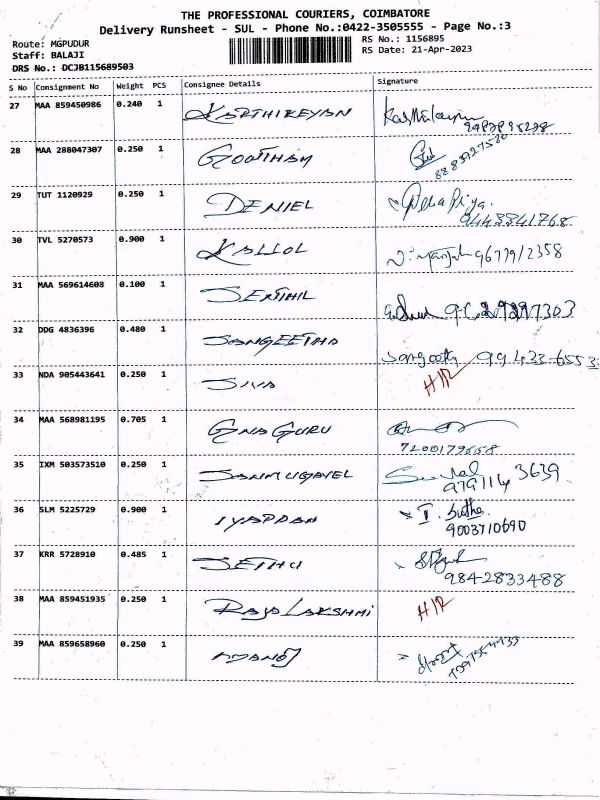 THE PROFESSIONAL COURIERS, COIMBATORE
Delivery Runsheet - SUL - Phone No.:0422-3505555 - Page No.:3
Route: MGPUDUR
RS No.: 1156895
Staff: BALAJI
RS Date: 21-Apr-2023
DRS No.: DCJB115689503
S No Consignment No Weight PCS Consignee Details Signature
27 MAA 859450986 0.240 1 KARTHIKEYAN
28 MAA 288047307 0.250 1 GOWTHAM
29 TUT 1120929 0.250 1 DENIEL
9443841768
30 TVL 5270573 0.900 1 KALLOL 9677912358
31 MAA 569614608 0.100 1 SENTHIL
32 DDG 4836396 0.480 1 SANGEETHA
33 NDA 905443641 0.250 1 SIVA
34 MAA 568981195 0.705 1 GNAGURU
7200179658
35 IXM 503573510 0.250 1 SANMUGAVEL
36 SLM 5225729 0.900 1 IYAPPAN I. Sutha
9003710690
37 KRR 5728910 0.485 1 SETHU
9842833488
38 MAA 859451935 0.250 1 RAJALAKSHMI H/R
39 MAA 859658960 0.250 1 MANOJ